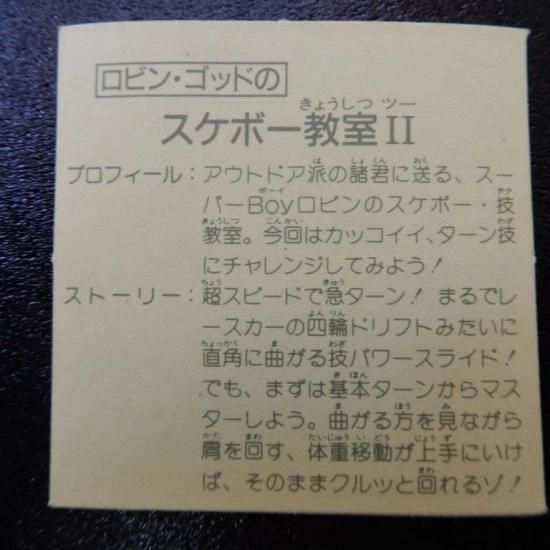 ロビン・ゴッドの
スケボー教室II
プロフィール：アウトドア派の諸君に送る、スー
パーBoyロビンのスケボー・技
教室。今回はカッコイイ、ターン技
にチャレンジしてみよう！
ストーリー：超スピードで急ターン！まるでレ
ースカーの四輪ドリフトみたいに
直角に曲がる技パワースライド！
でも、まずは基本ターンからマス
ターしよう。曲がる方を見ながら
肩を回す、体重移動が上手にいけ
ば、そのままクルッと回れるゾ！